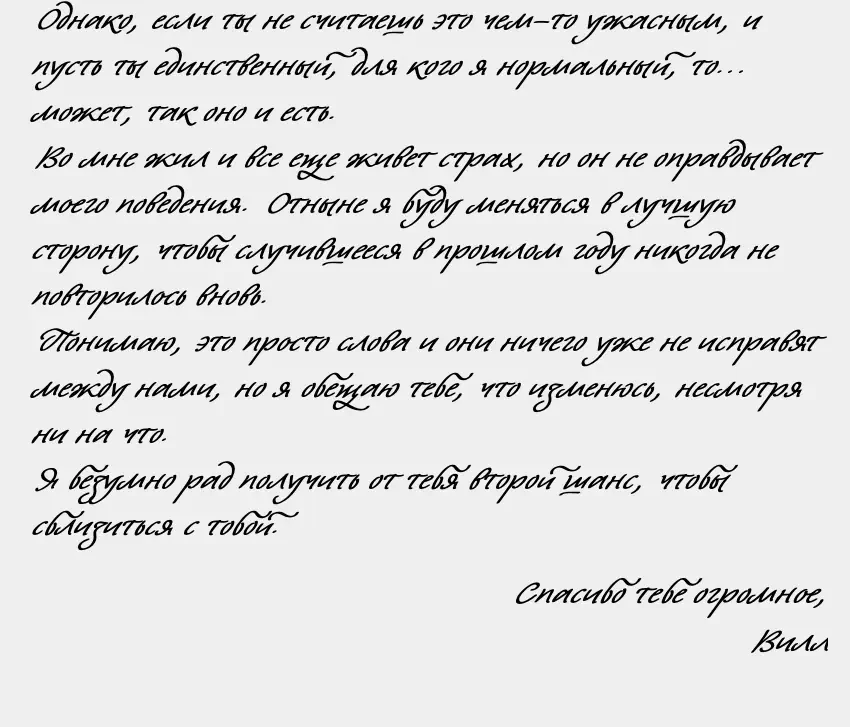 Однако, если ты не считаешь это чем-то ужасным, и
пусть ты единственный, для кого я нормальный, то...
может, так оно и есть.
Во мне жил и все еще живет страх, но он не оправдывает
моего поведения. Отныне я буду меняться в лучшую
сторону, чтобы случившееся в прошлом году никогда не
повторилось вновь.
Понимаю, это просто слова и они ничего уже не исправят
между нами, но я обещаю тебе, что изменюсь, несмотря
ни на что.
Я безумно рад получить от тебя второй шанс, чтобы
сблизиться с тобой.
Спасибо тебе огромное,
Вилл